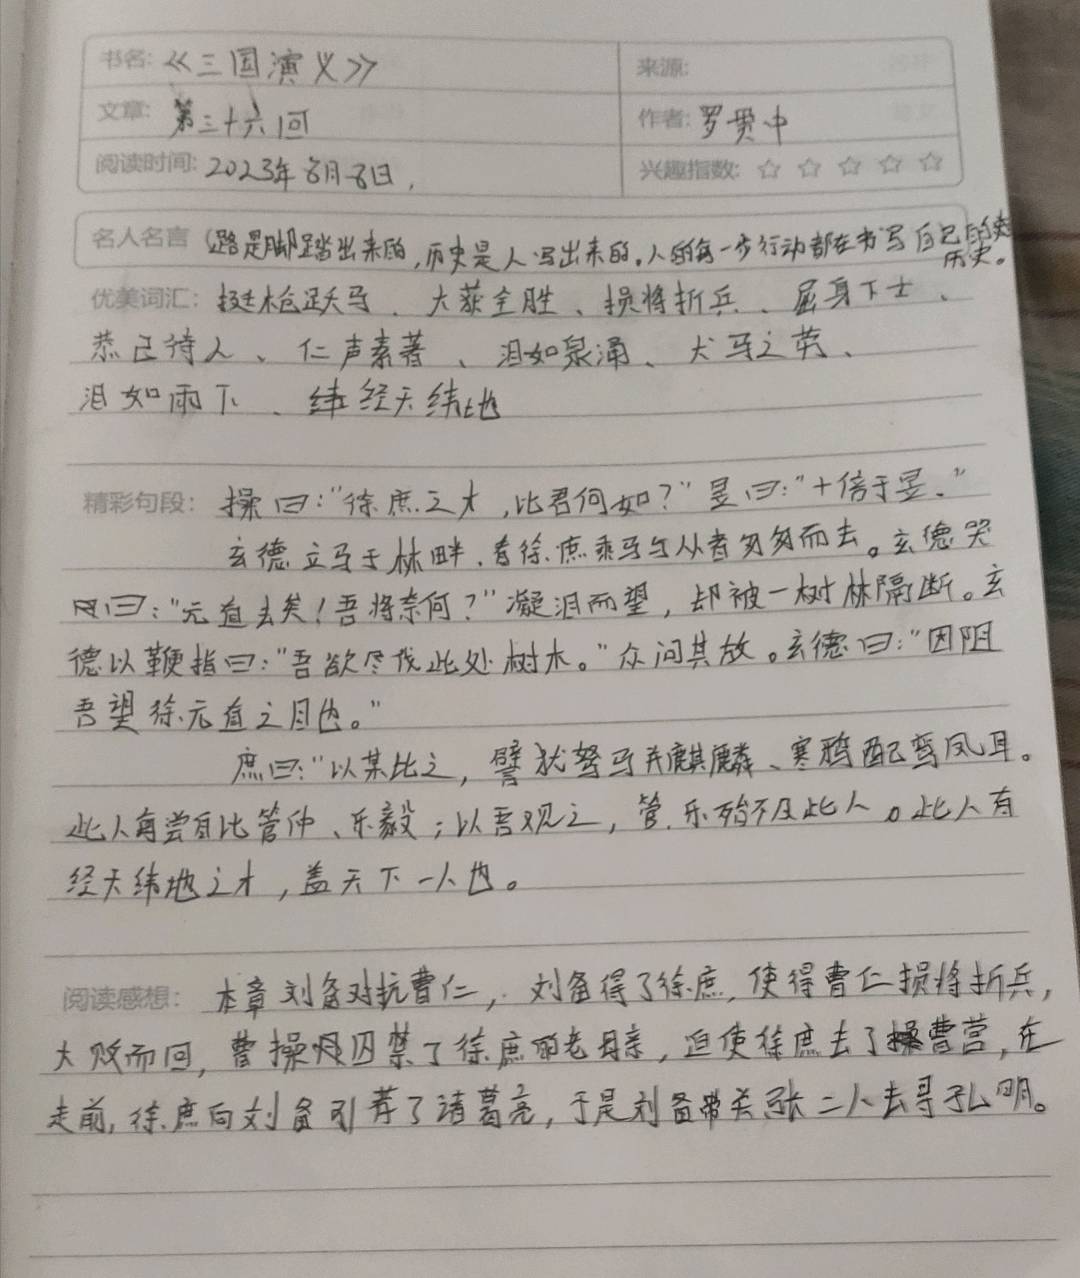 书名: 《三国演义》 来源:
文章: 第三十六回 作者: 罗贯中
阅读时间: 2023年8月8日. 兴趣指数: ☆ ☆ ☆ ☆ ☆
名人名言 路是脚踏出来的,历史是人写出来的.人的每一步行动都在书写自己的
历史。
优美词汇: 挺枪跃马、大获全胜、损将折兵、屈身下士、
恭己待人、仁声素著、泪如泉涌、犬马之劳、
泪如雨下、经天纬地
精彩句段: 操曰:"徐庶之才,比君何如?"昱曰:"十倍于昱."
玄德立马于林畔.看徐庶乘马与从者匆匆而去。玄德哭
曰:"元直去矣!吾将奈何?"凝泪而望,却被一树林隔断。玄
德以鞭指曰:"吾欲尽伐此处树木。"众问其故。玄德曰:"因阻
吾望徐元直之目也。"
庶曰:"以某比之,譬犹驽马并麒麟、寒鸦配鸾凤耳。
此人每尝自比管仲、乐毅;以吾观之,管.乐殆不及此人。此人有
经天纬地之才,盖天下一人也。
阅读感想: 本章刘备对抗曹仁,刘备得了徐庶,使得曹仁损将折兵,
大败而回,曹操囚禁了徐庶的老母亲,迫使徐庶去了曹营,在
走前,徐庶向刘备引荐了诸葛亮,于是刘备带关张二人去寻孔明。